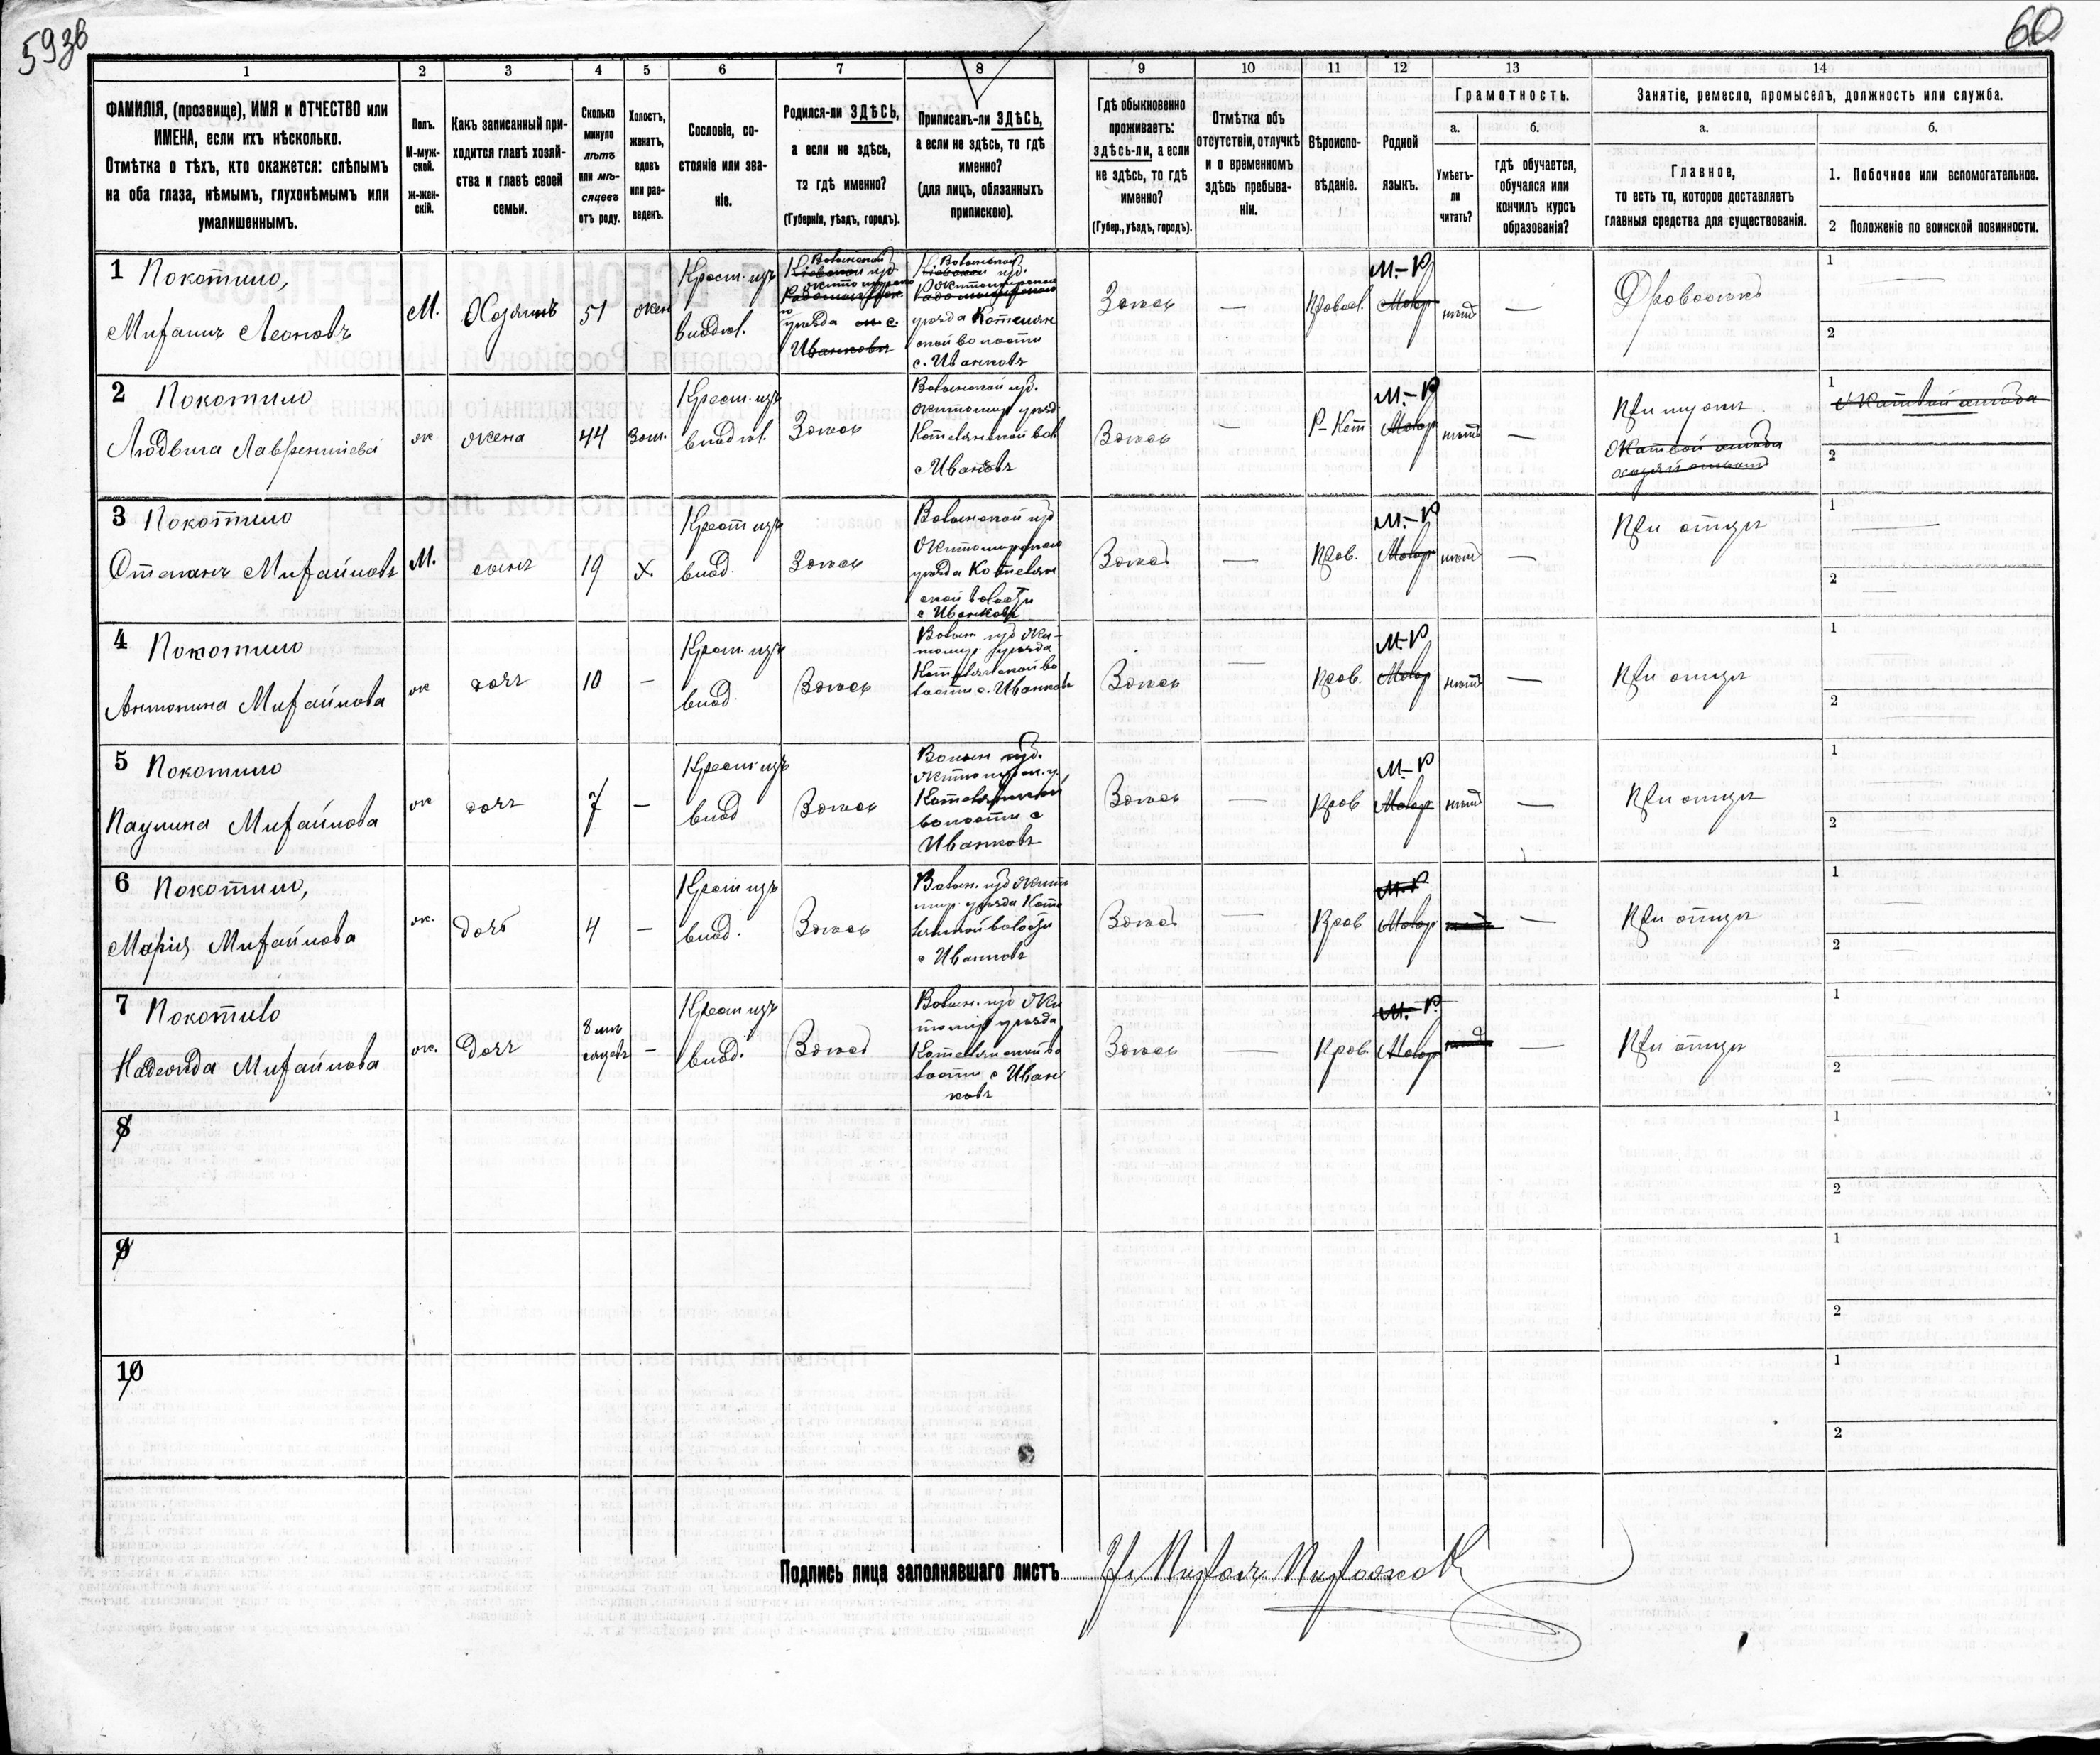 593б
60
1
2
3
4
5
6
7
8
9
10
11
12
13
14
ФАМИЛІЯ, (прозвище), ИМЯ и ОТЧЕСТВО или
ИМЕНА, если ихъ нѣсколько.
Отмѣтка о тѣхъ, кто окажется: слѣпымъ
на оба глаза, нѣмымъ, глухонѣмымъ или
умалишеннымъ.
Полъ.
М-муж-
ской.
ж-жен-
скій.
Какъ записанный при-
ходится главѣ хозяй-
ства и главѣ своей
семьи.
Сколько
минуло
лѣтъ
или мѣ-
сяцевъ
отъ роду.
Холостъ,
женатъ,
вдовъ
или раз-
веденъ.
Сословіе, со-
стояніе или зва-
ніе.
Родился-ли ЗДѢСЬ,
а если не здѣсь,
то гдѣ именно?
(Губернія, уѣздъ, городъ).
Приписанъ-ли ЗДѢСЬ,
а если не здѣсь, то гдѣ
именно?
(для лицъ, обязанныхъ
припискою).
Гдѣ обыкновенно
проживаетъ:
здѣсь-ли, а если
не здѣсь, то гдѣ
именно?
(Губер., уѣздъ, городъ).
Отмѣтка объ
отсутствіи, отлучкѣ
и о временномъ
здѣсь пребыва-
ніи.
Вѣроиспо-
вѣданіе.
Родной
языкъ.
Грамотность.
а.
Умѣетъ-
ли
читать?
б.
гдѣ обучается,
обучался или
кончилъ курсъ
образованія?
Занятіе, ремесло, промыселъ, должность или служба.
а.
Главное,
то есть то, которое доставляетъ
главныя средства для существованія.
б.
1. Побочное или вспомогательное.
2 Положеніе по воинской повинности.
1 Покотило,
Михаилъ Леоновъ
М.
Хозяинъ
51
жен
Крест. изъ
владѣл.
Волынской
Кіевской губ.
уѣзда с.
Иванковъ
Волынской
Кіевской губ.
Житомирскаго
уѣзда Котелян
ской волости
с. Иванковъ
Здѣсь
—
Правосл.
М.-Р
Малор
нѣтъ
—
Дровосѣкъ
1 —
2
2 Покотило
Людвига Лаврентіева
ж
жена
44
Зам.
Крест. изъ
владѣл.
Здѣсь
Волынской губ.
Житомир уѣзд
Котелянской вол
с Иванковъ
Здѣсь
—
Р-Кат
М.-Р
Малор
нѣтъ
—
При мужѣ
1
2
3 Покотило
Степанъ Михайловъ
М.
сынъ
19
х.
Крест изъ
влад.
Здѣсь
Волынской губ
Житомирскаго
уѣзда Котелян
ской волости
с Иванковъ
Здѣсь
—
Прав.
М.-Р
Малор
нѣтъ
—
При отцѣ
1 —
2 —
4 Покотило
Антонина Михайлова
ж
дочь
10
—
Крест. изъ
влад.
Здѣсь
Волын губ Жи-
томир уѣзда
Котелянской во
лости с. Иванковъ
Здѣсь
—
Прав.
М.-Р
Малор
нѣтъ
—
При отцѣ
1 —
2 —
5 Покотило
Паулина Михайлова
ж
дочь
7
—
Крест изъ
влад
Здѣсь
Волын губ.
Житомирск. у.
Котелянской
волости с
Иванковъ
Здѣсь
—
Прав
М.-Р
Малор
нѣтъ
—
При отцѣ
1 —
2 —
6 Покотило,
Марія Михайлова
ж.
дочь
4
—
Крест изъ
влад.
Здѣсь
Волын. губ Жито
мир уѣзда Коте
лянской волости
с Иванковъ
Здѣсь
—
Прав
М.-Р
Малор
нѣтъ
—
При отцѣ
1 —
2 —
7 Покотило
Надежда Михайлова
ж.
Дочь
8 мѣ
сяцевъ
—
Крест изъ
влад.
Здѣсь
Волын. губ Жи
томир уѣзда
Котелянской во
лости с Иван
ковъ
Здѣсь
—
Прав
М.-Р.
Малор
—
При отцѣ
1 —
2 —
8
1
2
9
1
2
10
1
2
Подпись лица заполнявшаго листъ